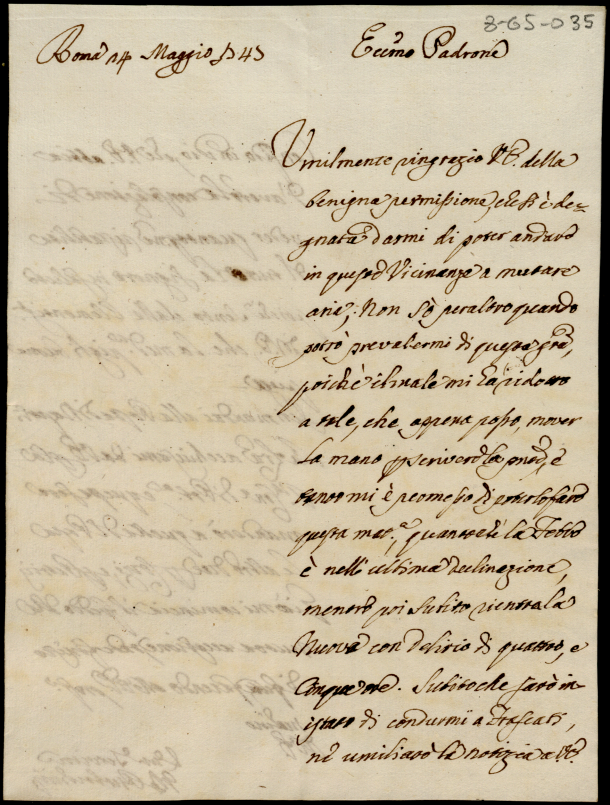 8-65-035
Roma 14 Maggio 1745
Eccmo Padrone
Umilmente ringrazio V.E. della
benigna permissione, che si è de-
gnata darmi di poter andare
in queste Vicinanze a mutare
aria; Non sò peraltro quando
potrò prevalermi di questa gra,
poichè il male mi ha ridotto
a tale, che appena posso mover
la mano p scriverle la pnte, e
tanto mi è permesso di poterlo fare
questa matna, quanto che la Febbre
è nell'ultima declinazione,
mentre poi subito rientra la
Nuova con delirio di quattro, e
Cinque ore. Subito che sarò in
istato di condurmi a Frascati,
ne umiliarò la notizia a V.E.